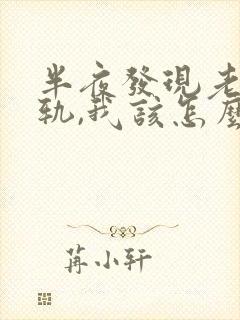 半夜發現老
軌,我該怎麼
苒小轩